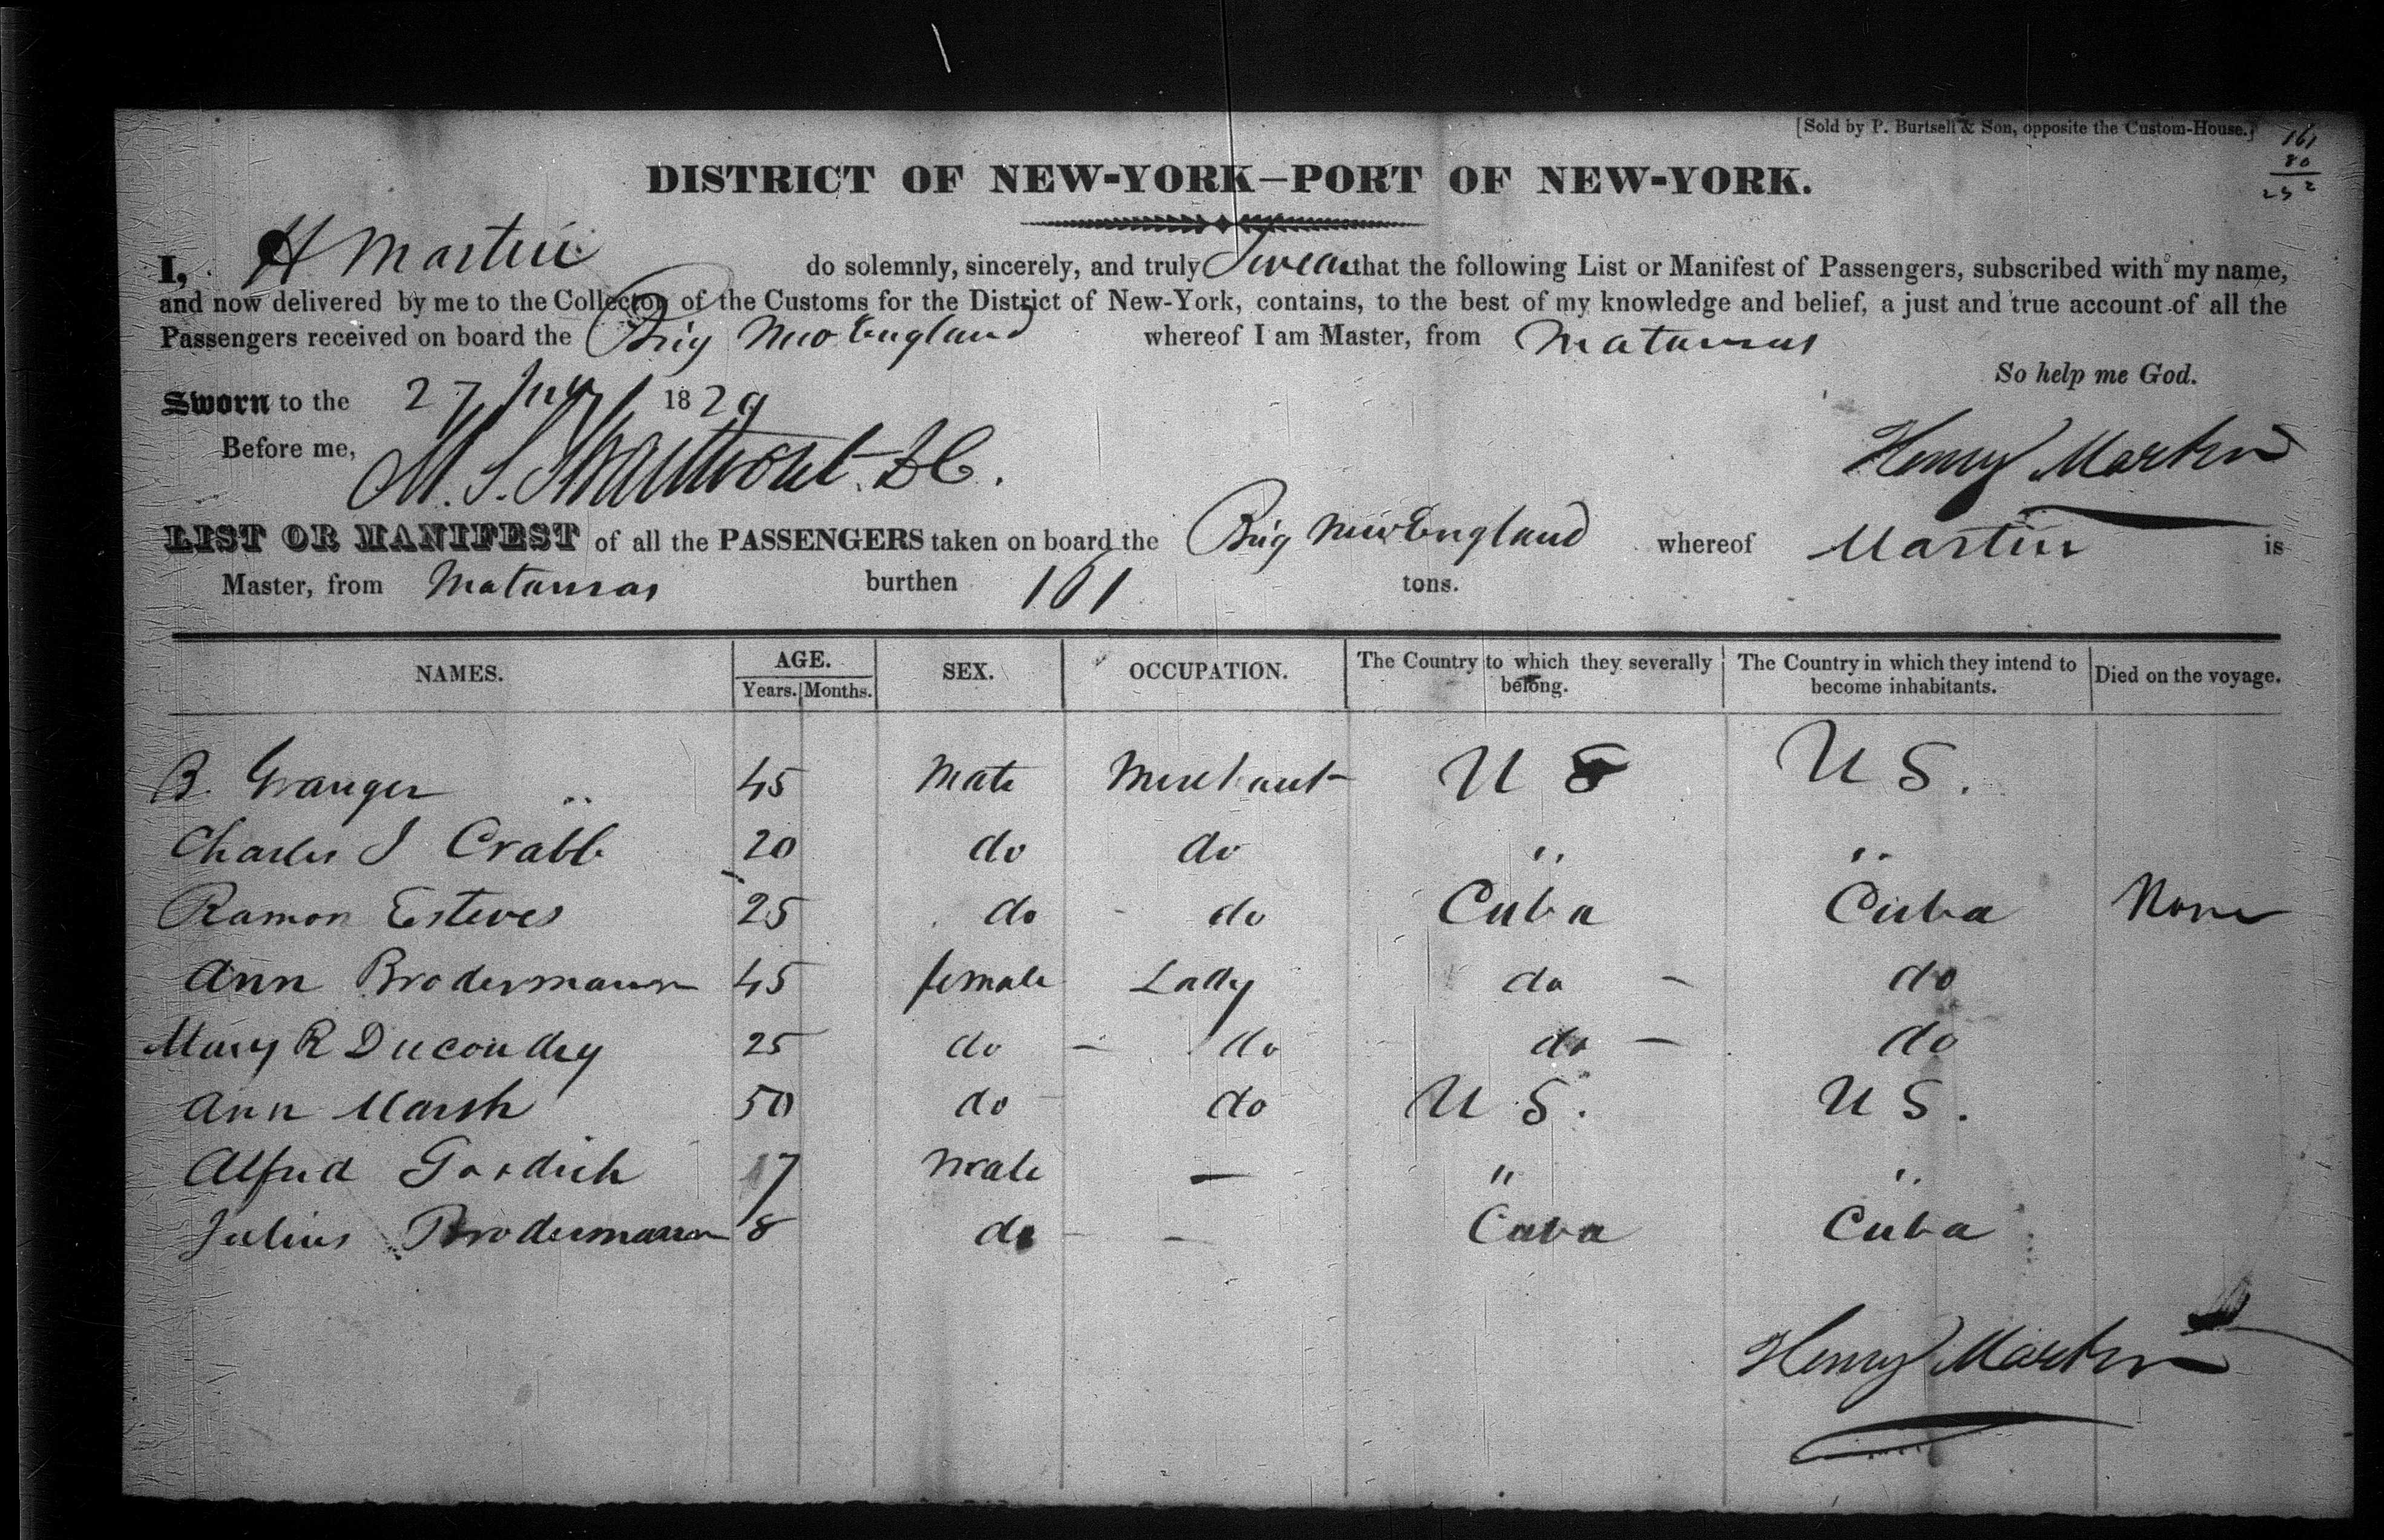 [Sold by P. Burtsell & Son, opposite the Custom-House.]
161
80
DISTRICT OF NEW-YORK—PORT OF NEW-YORK.
I, H Martin do solemnly, sincerely, and truly Swear that the following List or Manifest of Passengers, subscribed with my name,
and now delivered by me to the Collector of the Customs for the District of New-York, contains, to the best of my knowledge and belief, a just and true account of all the
Passengers received on board the Brig New England whereof I am Master, from Matansas
So help me God.
Sworn to the 27 1829
Before me, M. S. Swartwout D C.
Henry Martin
LIST OR MANIFEST of all the PASSENGERS taken on board the Brig New England whereof Martin is
Master, from Matansas burthen 161 tons.
NAMES. AGE. Years. Months. SEX. OCCUPATION. The Country to which they severally belong. The Country in which they intend to become inhabitants. Died on the voyage.
B. Granger 45 Male Merchant U S U S.
Charles J Crabb 20 do do " "
Ramon Esteves 25 do do Cuba Cuba None
Ann Brodermann 45 female Lady do do
Mary R Ducoudry 25 do do do do
Ann Marsh 50 do do U S. U S.
Alfred 17 Male — " "
Julius Brodermann 8 do — Cuba Cuba
Henry Martin